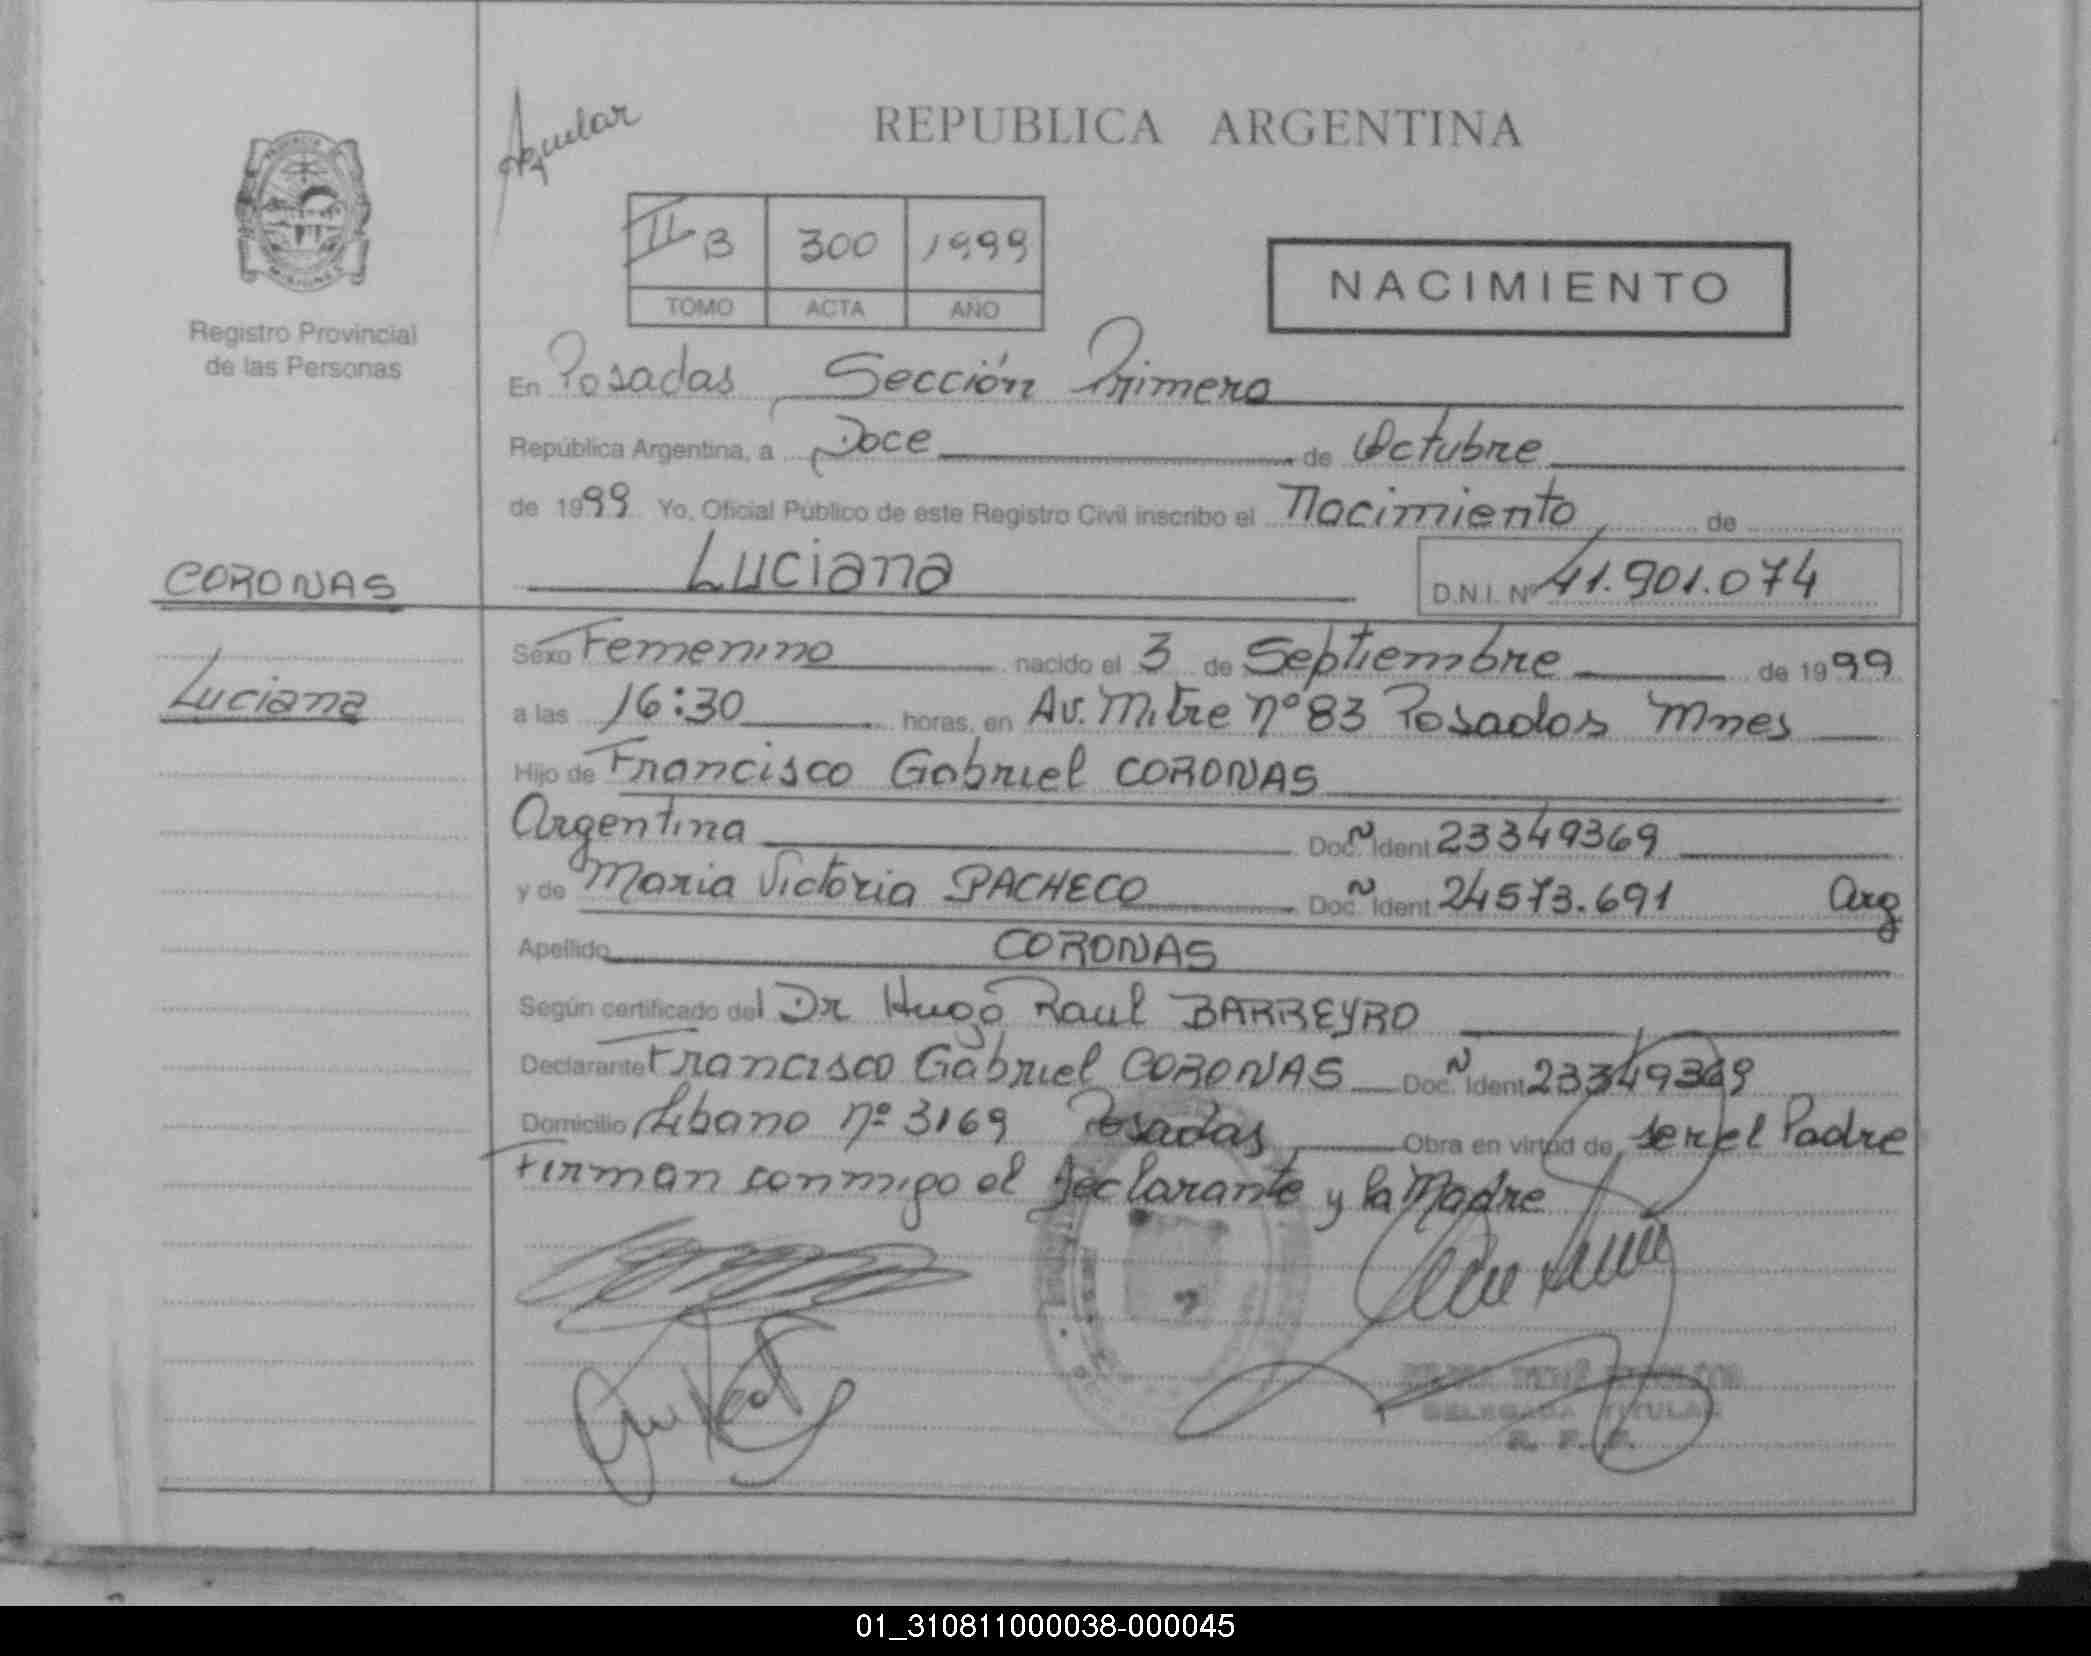 Aguilar
REPUBLICA ARGENTINA
II B 300 1999
TOMO ACTA AÑO
NACIMIENTO
Registro Provincial
de las Personas
En Posadas, Sección Primera
República Argentina, a Doce de Octubre
de 1999 Yo, Oficial Público de este Registro Civil inscribo el Nacimiento de
Luciana D.N.I. Nº 41.901.074
CORONAS
Luciana
Sexo Femenino nacido el 3 de Septiembre de 1999
a las 16:30 horas, en Av. Mitre nº 83 Posadas Mnes
Hijo de Francisco Gabriel CORONAS
Argentina Doc. Ident 23349369
y de Maria Victoria PACHECO Doc. Ident 24573.691 Arg
Apellido CORONAS
Según certificado del Dr Hugo Raul BARREYRO
Declarante Francisco Gabriel CORONAS Doc. Ident 23349369
Domicilio Libano nº 3169 Posadas, Obra en virtud de ser el Padre
Firman conmigo el Declarante y la Madre
DELEGADA TITULAR
R. P. P.
01_310811000038-000045